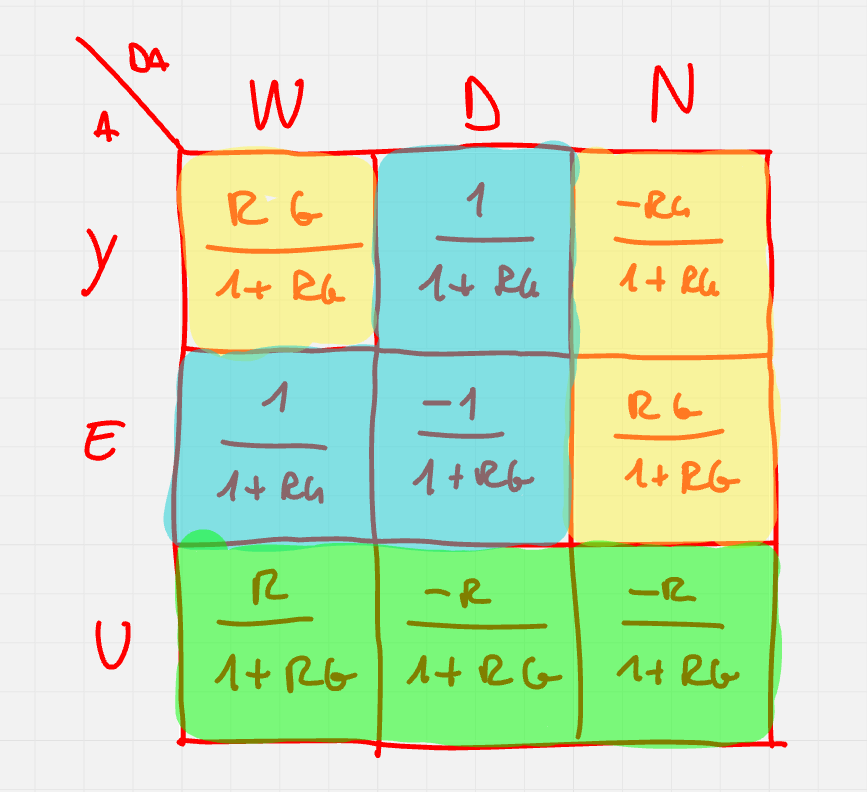 DA
A
W D N
Y RG/1+RG 1/1+RG -RG/1+RG
E 1/1+RG -1/1+RG RG/1+RG
U R/1+RG -R/1+RG -R/1+RG